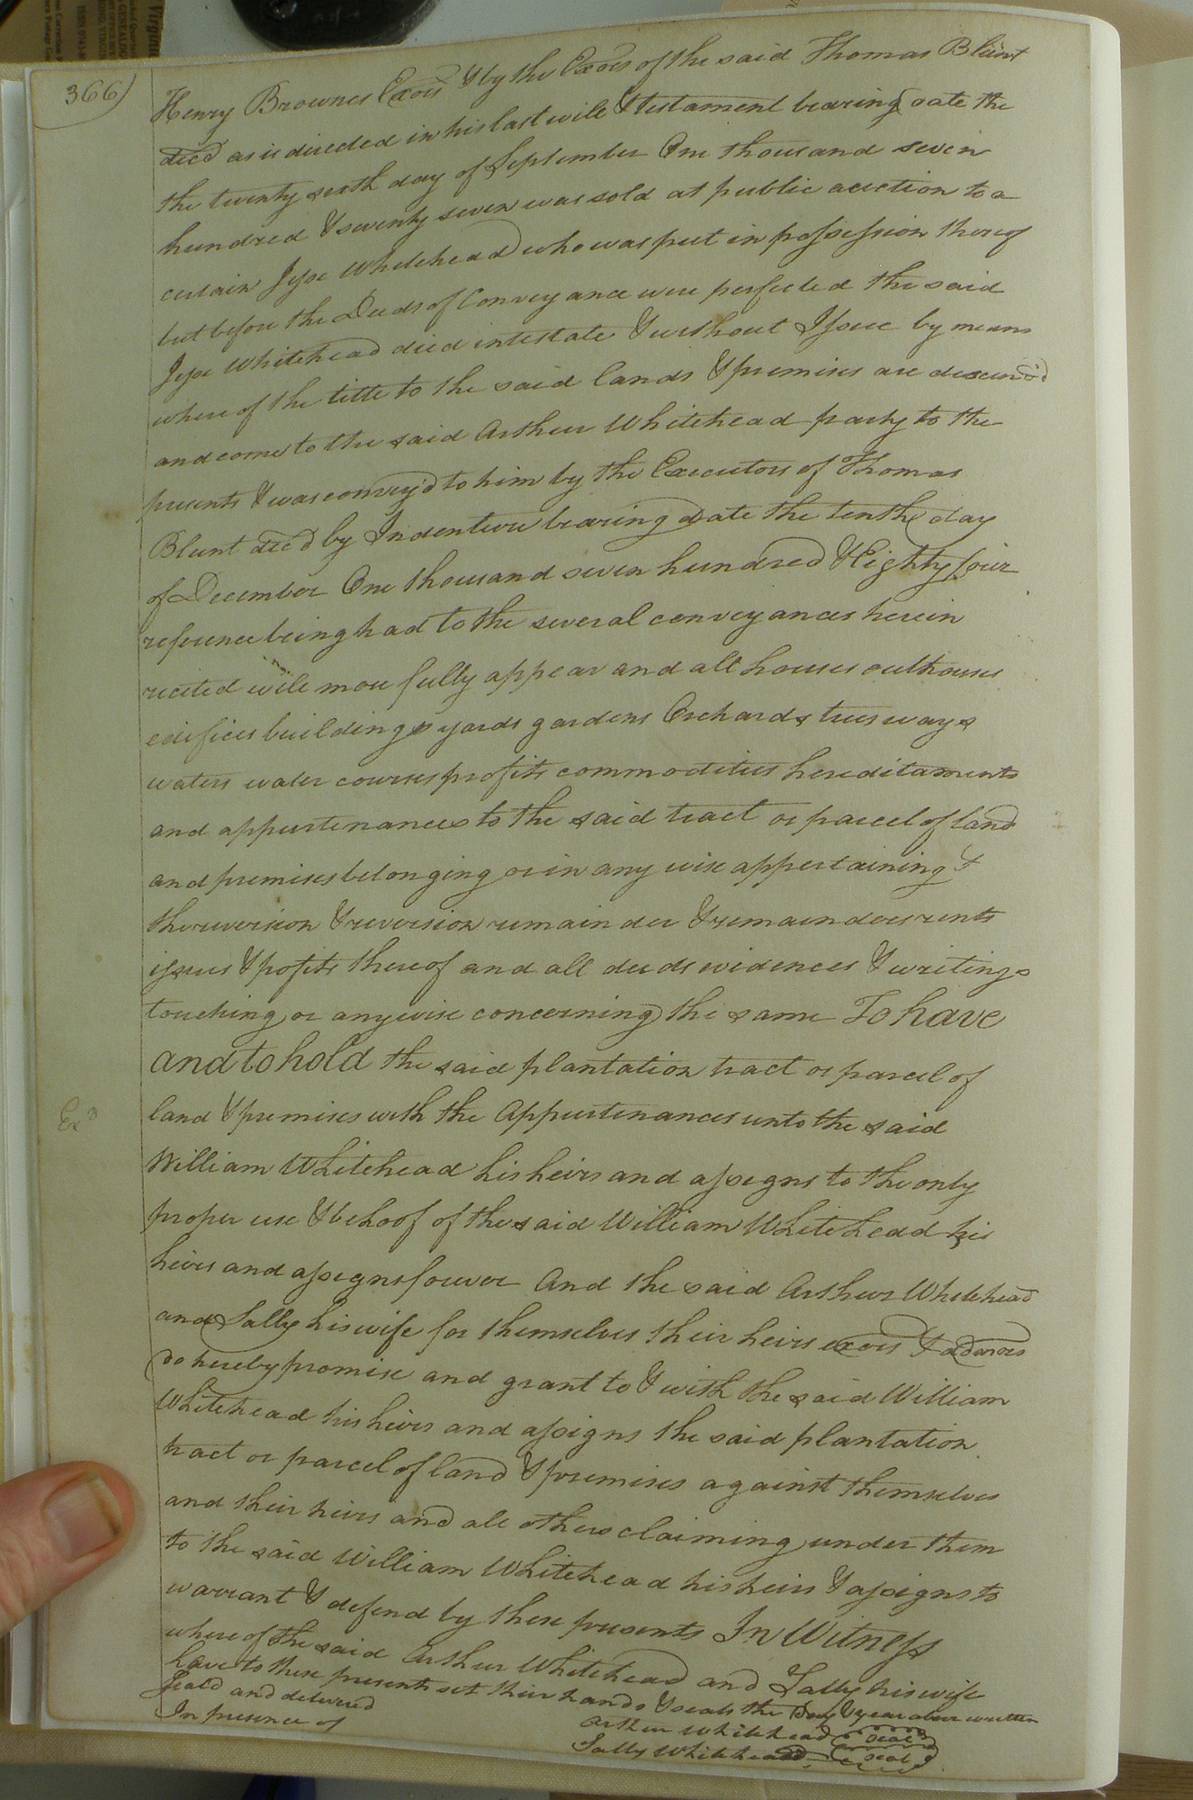 366)
Henry Brownes Exors & by the Exors of the said Thomas Blunt
decd as is directed in his last will & testament bearing date the
the twenty sixth day of September One thousand seven
hundred & seventy seven was sold at public auction to a
certain Jesse Whitehead who was put in possession thereof
but before the Deeds of Conveyance were perfected the said
Jesse Whitehead died intestate & without Issue by means
where of the title to the said lands & premises are descend'd
and come to the said Arthur Whitehead party to the
presents & was convey'd to him by the Executors of Thomas
Blunt decd by Indenture bearing Date the tenth day
of December One thousand seven hundred & Eighty four
reference being had to the several conveyances herein
recited will more fully appear and all houses outhouses
edifices buildings yards gardens Orchards trees ways
waters water courses profits commodities hereditaments
and appurtenances to the said tract or parcel of land
and premises belonging or in any wise appertaining &
the reversion & reversion remainder & remainders rents
issues & profits thereof and all deeds evidences & writings
touching or any wise concerning the same To have
and to hold the said plantation tract or parcel of
Exd
land & premises with the Appurtenances unto the said
William Whitehead his heirs and assigns to the only
proper use & behoof of the said William Whitehead his
heirs and assigns forever And the said Arthur Whitehead
and Sally his wife for themselves their heirs exors & admors
do hereby promise and grant to & with the said William
Whitehead his heirs and assigns the said plantation
tract or parcel of land & premises against themselves
and their heirs and all others claiming under them
to the said William Whitehead his heirs & assigns to
warrant & defend by these presents In Witness
where of the said Arthur Whitehead and Sally his wife
have to these presents set their hands & seals the Day & year above written
Seald and delivered
In presence of
Arthur Whitehead seal
Sally Whitehead seal